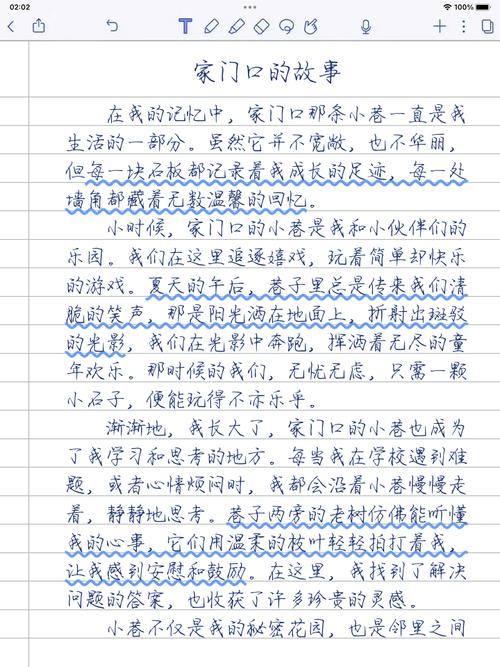 02:02
100%
T
家门口的故事
在我的记忆中，家门口那条小巷一直是我
生活的一部分。虽然它并不宽敞，也不华丽，
但每一块石板都记录着我成长的足迹，每一处
墙角都藏着无数温馨的回忆。
小时候，家门口的小巷是我和小伙伴们的
乐园。我们在这里追逐嬉戏，玩着简单却快乐
的游戏。夏天的午后，巷子里总是传来我们清
脆的笑声，那是阳光洒在地面上，折射出斑驳
的光影，我们在光影中奔跑，挥洒着无尽的童
年欢乐。那时候的我们，无忧无虑，只需一颗
小石子，便能玩得不亦乐乎。
渐渐地，我长大了，家门口的小巷也成为
了我学习和思考的地方。每当我在学校遇到难
题，或者心情烦闷时，我都会沿着小巷慢慢走
着，静静地思考。巷子两旁的老树仿佛能听懂
我的心事，它们用温柔的枝叶轻轻拍打着我，
让我感到安慰和鼓励。在这里，我找到了解决
问题的答案，也收获了许多珍贵的灵感。
小巷不仅是我的秘密花园，也是邻里之间